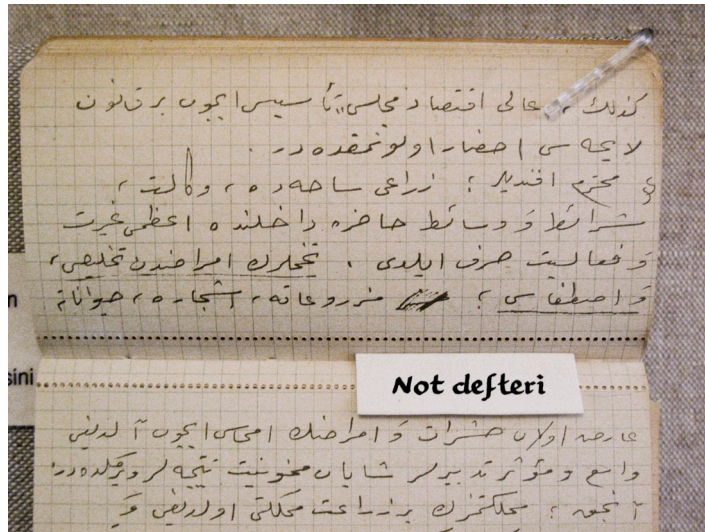 كذلك ، عالی اقتصاد مجلسی تأسیس ایچون بر قانون
لایحه سی احضار اولونمقده در .
محترم افندیلر ؛ زراعی ساحه ده ، وكالت ،
شرائط و وسائط حاضره داخلنده اعظمی غیرت
و فعالیت صرف ایلدی . تخملرك امراضدن تخلیصی ،
و اصطفاسی ؛ مزروعاته ، اشجاره ، حیواناته
Not defteri
sini
عارض اولان حشرات و امراضك امحاسی ایچون آلدیغی
واسع و مؤثر تدبیرلر شایان ممنونیت نتیجه لر ویرمكده در
آنجق ؛ مملكتمزك بر زراعت مملكتی اولدیغی و